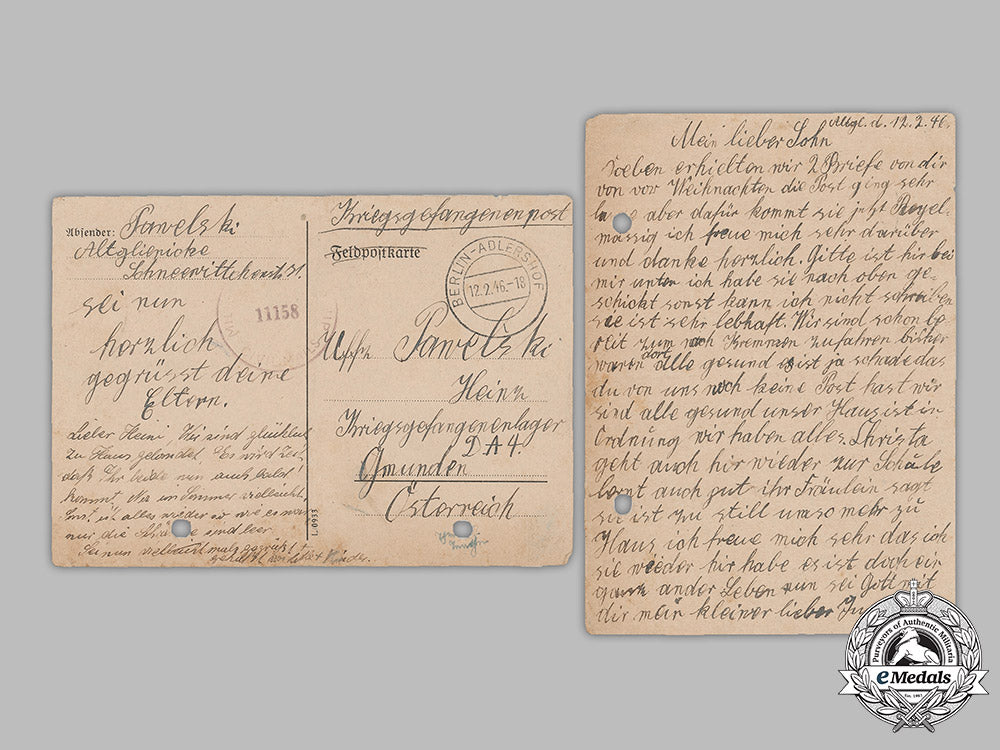 Absender: Pawelski
Altglienicke
Schneewittchenstr. 31.
sei nun
herzlich
gegrüsst deine
Eltern.
Lieber Heini. Wir sind glücklich
zu Haus gelandet. Es wird Zeit,
daß Ihr beide nun auch bald
kommt. im Sommer vielleicht.
ist alles wieder wie es war
nur die sind leer.
Sei nun vielmals gegrüßt!
Kinder.
Kriegsgefangenenpost
Feldpostkarte
BERLIN-ADLERSHOF
12.2.46.-18
1
11158
Uffz Pawelski
Heinz
Kriegsgefangenenlager
D A 4.
Gmunden
Österreich
L 0933
Altgl. d. 12.2.46.
Mein lieber Sohn
Soeben erhielten wir 2 Briefe von dir
von vor Weihnachten die Post ging sehr
aber dafür kommt sie jetzt Regel-
mässig ich freue mich sehr darüber
und danke herzlich. Gitte ist hir bei
mir unten ich habe sie nach oben ge-
schickt sonst kann ich nicht schreiben
sie ist sehr lebhaft. Wir sind schon be
reit zum nach Kremmen zufahren bisher
waren dort alle gesund es ist ja schade das
du von uns noch keine Post hast wir
sind alle gesund unser Haus ist in
Ordnung wir haben alles. Christa
geht auch hir wieder zur Schule
lernt auch gut ihr Fräulein sagt
sie ist zu still umso mehr zu
Haus, ich freue mich sehr das ich
sie wieder hir habe es ist doch ein
ganz ander Leben nun sei Gott mit
dir mein kleiner lieber
Purveyors of Authentic Militaria
eMedals